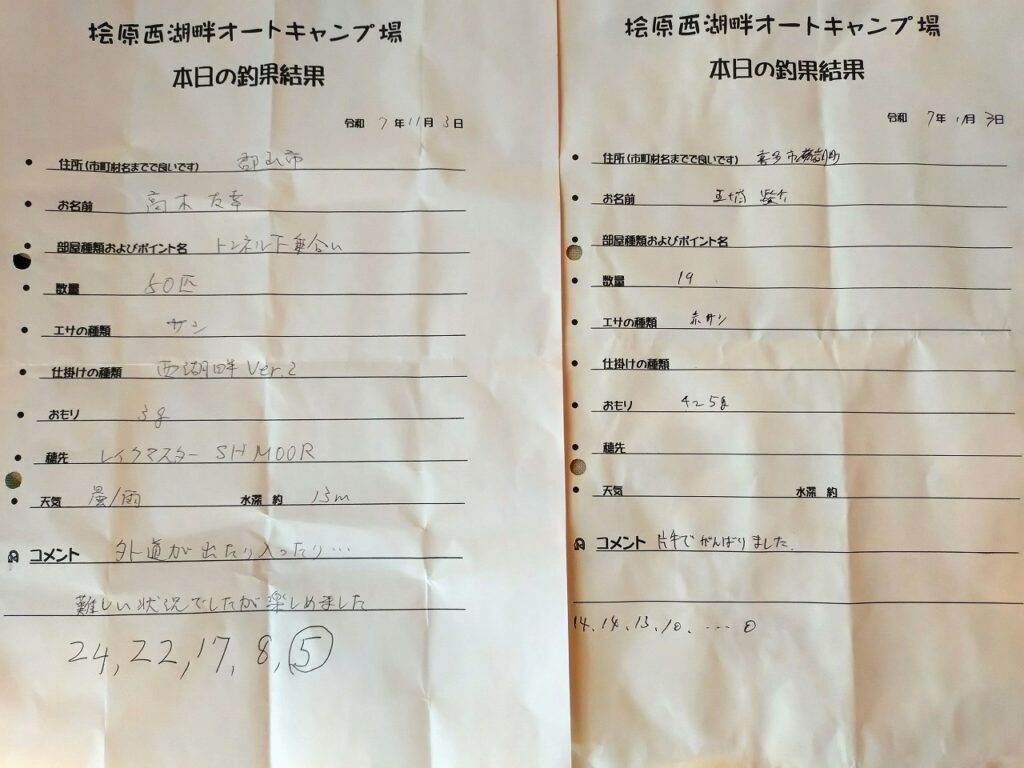 桧原西湖畔オートキャンプ場
本日の釣果結果
令和 7 年 11 月 3 日
住所(市町材名までで良いです) 郡山市
お名前 高木 友幸
部屋種類およびポイント名 トンネル下乗合い
数量 50匹
エサの種類 サシ
仕掛けの種類 西湖畔 Ver.2
おもり 3g
穂先 レイクマスター SH M00R
天気 曇/雨 水深 約 13m
コメント 外道が出たり入ったり…
難しい状況でしたが楽しめました
24, 22, 17, 8, 5
桧原西湖畔オートキャンプ場
本日の釣果結果
令和 7 年 11 月 3 日
住所(市町材名までで良いです) 喜多
お名前
部屋種類およびポイント名
数量 19
エサの種類 赤サシ
仕掛けの種類
おもり 4~5g
穂先
天気 水深 約
コメント 片手でがんばりました.
14、14、13、10、…0